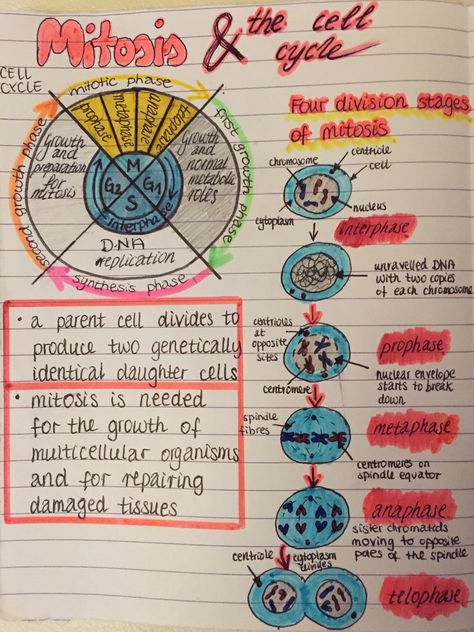 Mitosis & the cell
cycle
CELL
CYCLE
mitotic phase
prophase
metaphase
anaphase
telophase
first growth phase
second growth phase
synthesis phase
Growth
and
preparation
for
mitosis
Growth
and
normal
metabolic
roles
M
G2
G1
S
interphase
DNA
replication
• a parent cell divides to
produce two genetically
identical daughter cells
• mitosis is needed
for the growth of
multicellular organisms
and for repairing
damaged tissues
Four division stages
of mitosis
chromosome
centriole
cell
cytoplasm
nucleus
interphase
unravelled DNA
with two copies
of each chromosome
centrioles
at
opposite
sites
prophase
nuclear envelope
starts to break
down
centromere
spindle
fibres
metaphase
centromeres on
spindle equator
anaphase
sister chromatids
moving to opposite
poles of the spindle
centriole
cytoplasm
divides
telophase